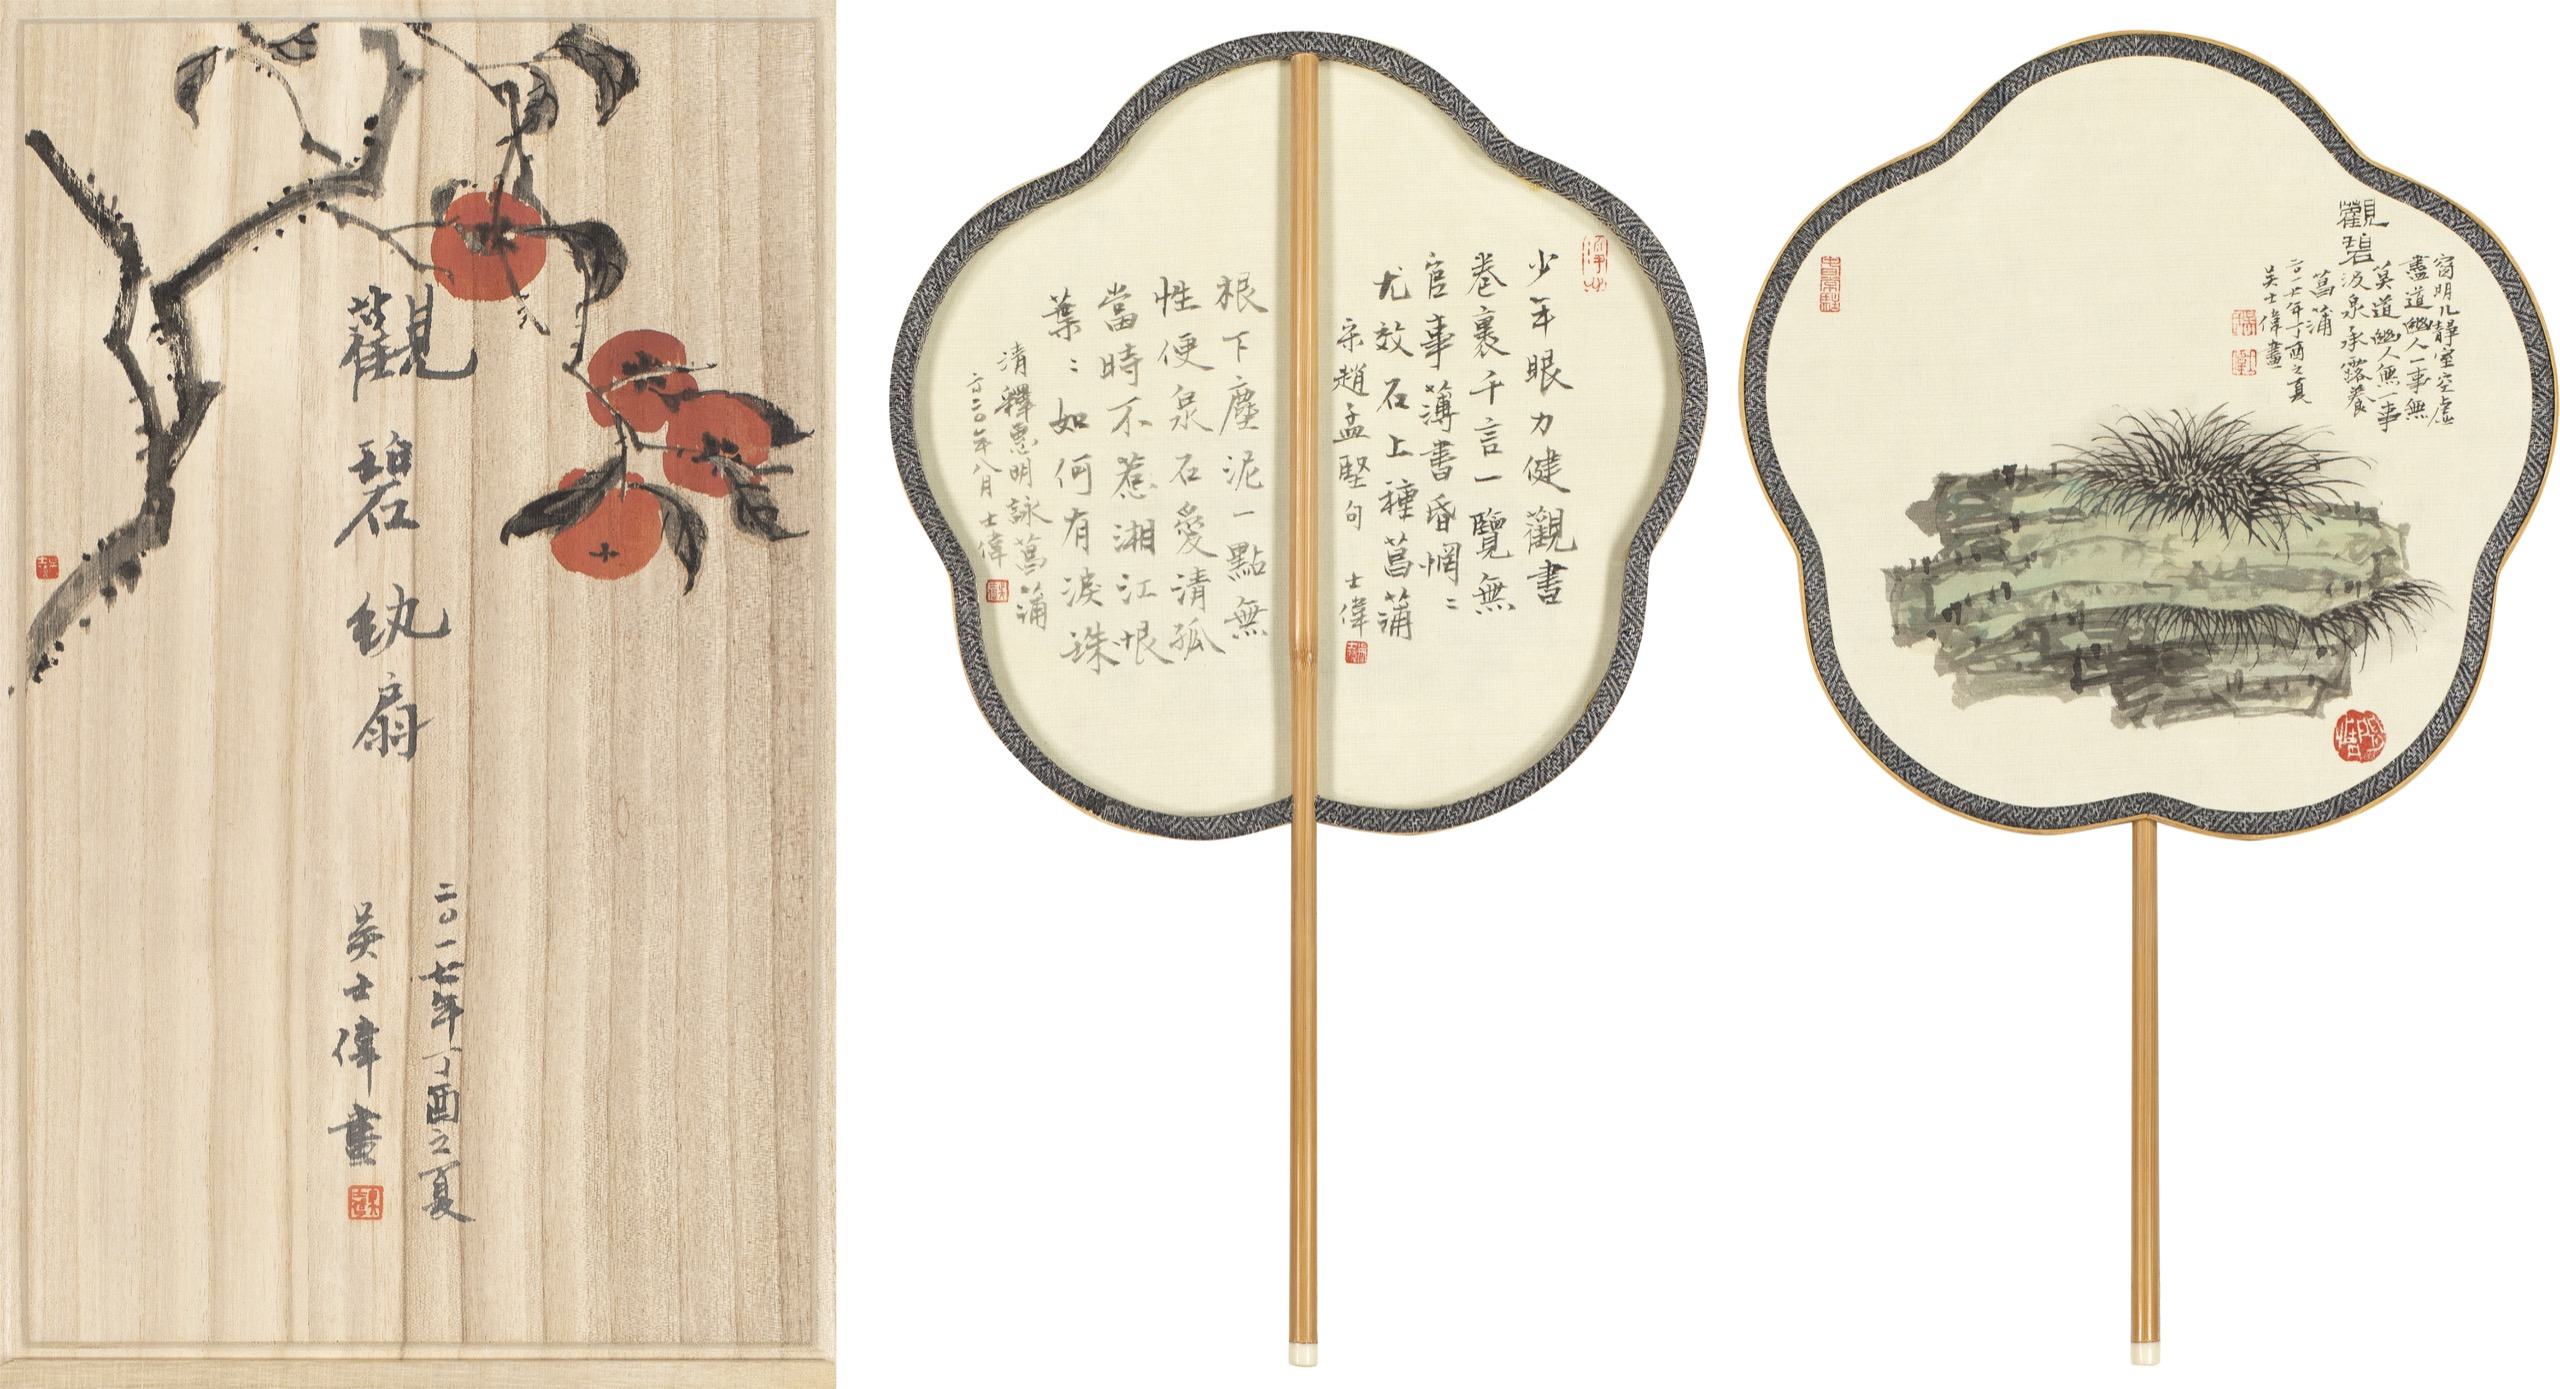 觀碧紈扇
二〇一七年丁酉之夏
吳士偉畫
少年眼力健觀書
卷裏千言一覽無
官事薄書昏惘〻
尤效石上種菖蒲
宋趙孟堅句
士偉
根下塵泥一點無
性便泉石愛清孤
當時不惹湘江恨
葉〻如何有淚珠
清釋惠明詠菖蒲
二〇二〇年八月 士偉
觀碧
窗明几靜室空虛
盡道幽人一事無
莫道幽人無一事
汲泉承露養
菖蒲
二〇一七年丁酉之夏
吳士偉畫